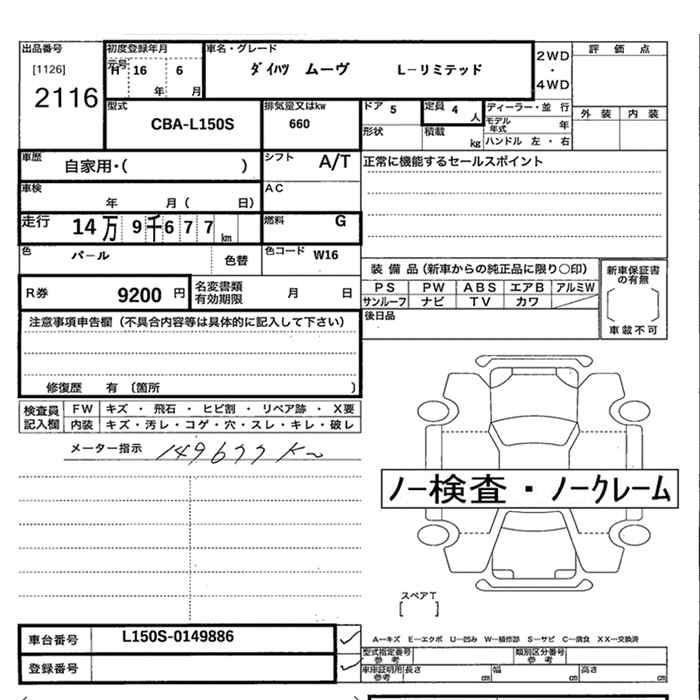 出品番号
[1126]
2116
初度登録年月
元号
H 16 6
年 月
車名・グレード
ダイハツ ムーヴ L-リミテッド
2WD
・
4WD
評価点
外装 内装
型式
CBA-L150S
排気量又はkw
660
ドア 5
定員 4 人
ディーラー・並 行
モデル年式 年
ハンドル 左・右
形状
積載 kg
車歴
自家用・( )
シフト A/T
正常に機能するセールスポイント
車検
年 月( 日)
AC
走行 14万9千677km
燃料 G
色 パール
色替
色コード W16
R券 9200円
名変書類
有効期限 月 日
装備品(新車からの純正品に限り〇印)
PS PW ABS エアB アルミW
サンルーフ ナビ TV カワ
新車保証書
の有無
車載不可
後日品
注意事項申告欄(不具合内容等は具体的に記入して下さい)
修復歴 有〔箇所 〕
検査員
記入欄
FW キズ・飛石・ヒビ割・リペア跡・X要
内装 キズ・汚レ・コゲ・穴・スレ・キレ・破レ
メーター指示 149677 Km
ノー検査・ノークレーム
スペアT
[ ]
車台番号 L150S-0149886
登録番号
A―キズ E―エクボ U―凹み W―補修部 S―サビ C―腐食 XX―交換済
型式指定番号
参考
類別区分番号
参考
車庫証明用
参考
長さ cm 幅 cm 高さ cm